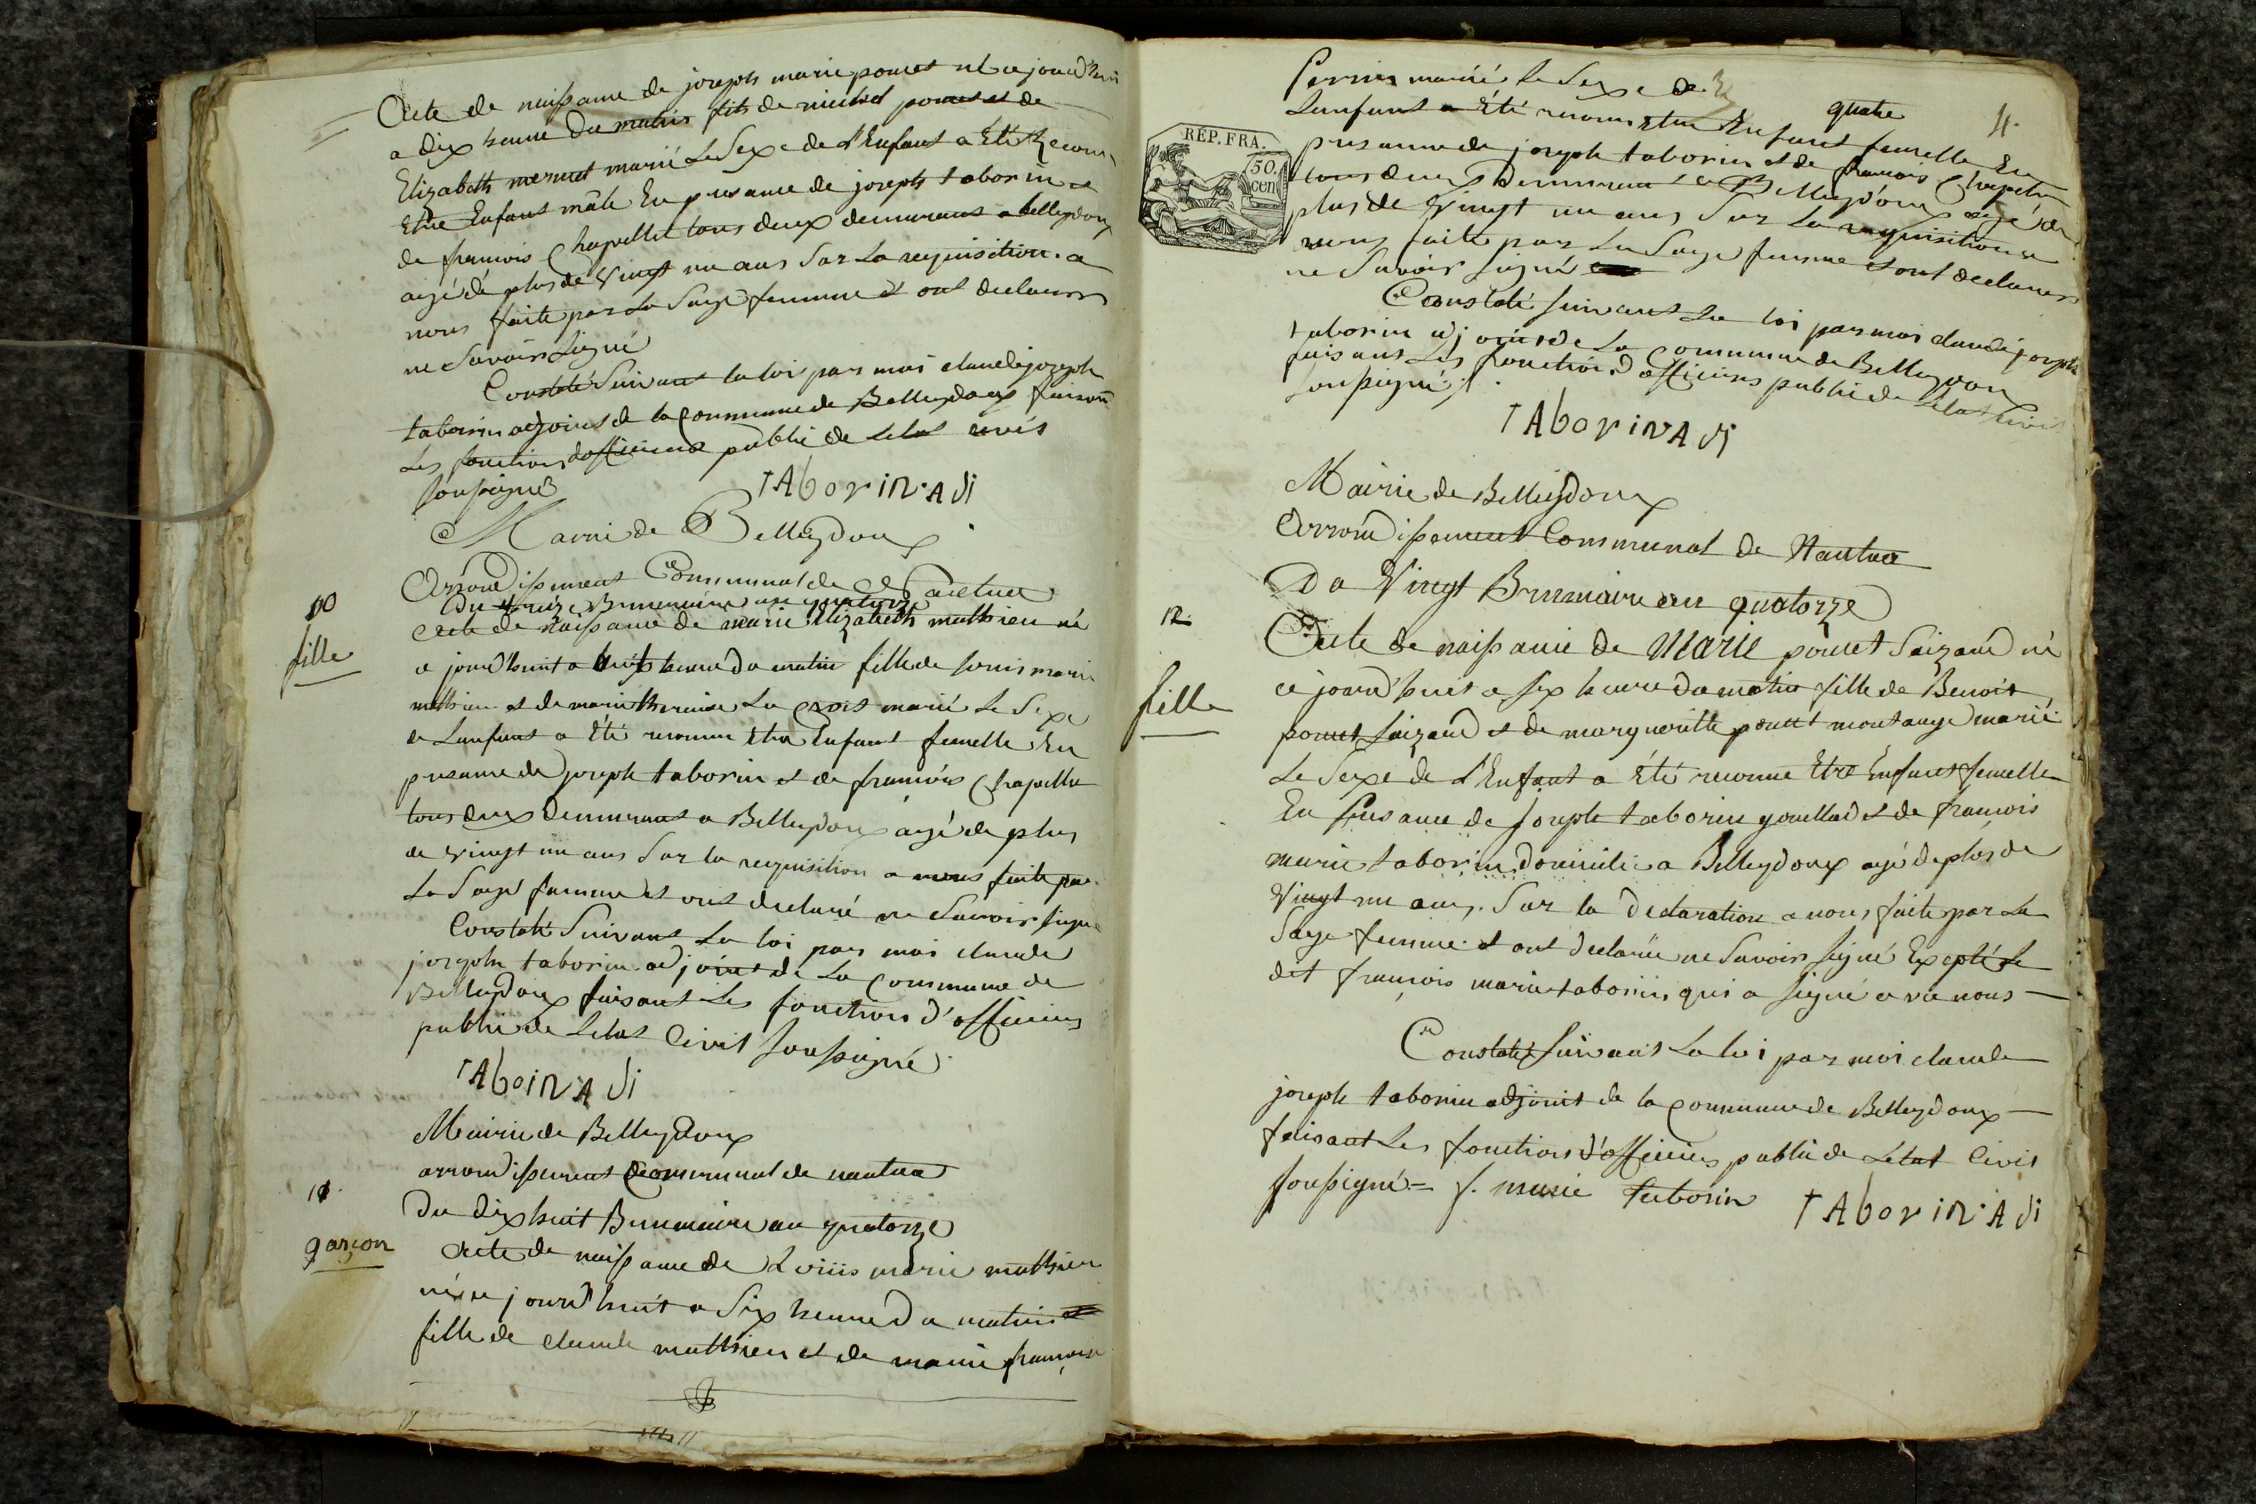 Acte de naissance de joseph marie poncet né ce jourd'hui
a dix heure du matin fils de michel poncet et de
Elizabeth mermet marié Le Sexe de L'Enfant a Eté Reconu
Etre Enfant mâle En presance de joseph taborin et
de francois Chapellet tous deux demurant a belleydoux
agé de plus de vingt un ans Sur La requisition a
nous faite par La Sage femme et ont declarer
ne Savoir Signé
Constaté Suivant la loi par moi claude joseph
taborin adjoint de la Commune de Belleydoux faisant
Les fonction d'officier public de Létat civis
Soussigné
TAborin.Adi
Mairie de Belleydoux
10
Arrondissement Communal de Nantua
Du seize Brumaire an quatorze
fille
Acte de naissance de marie Elizabeth mathieu né
ce jourd'huit a huit heure du matin fille de Louis marie
mathieu et de marie theraise La Croix marié Le Sexe
de Lanfant a Eté reconnu Etre Enfant femelle En
presance de joseph taborin et de francois Chapellet
tous deux demurant a Belleydoux agé de plus
de vingt un ans Sur la requisition a nous faite par
La Sage femme et ont declaré ne Savoir Signé
Constaté Suivant La loi par moi claude
joseph taborin adjoint de La Commune de
Belleydoux faisant Les fonction d'officiers
public de Létat Civit Soussigné
TAboin.Adi
Mairie de Belleydoux
arrondissement Communal de nantua
11
Du Dix huit Brumaire an quatorze
garçon
Acte de naissance de Louis marie mathieu
né ce jourd'huit a Six heure du matin
fille de claude mathieu et de marie françoise
quatre
4.
Perrin marié Le Sexe de
Lanfant a Eté reconnu Etre Enfant femelle En
presance de joseph taborin et de francois Chapellet
tous deux Demurant a Belleydoux agé de
plus de vingt un ans Sur La requisition a
nous faite par La Sage femme et ont declarer
ne Savoir Signé
RÉP. FRA.
50.
cen
Constaté Suivant La loi par moi claude joseph
taborin adjoint de La Commune de Belleydoux
faisant Les fonction d'officiers public de Létat Civis
Soussigné
TAborinAdi
Mairie de Belleydoux
Arrondissement Communal de Nantua
Du Vingt Brumaire an quatorze
12
Acte de naissance de Marie poncet Saizand né
fille
ce jourd'huit a Six heure du matin fille de Benoit
poncet Saizand et de marguerite poncet montange marié
Le Sexe de L'Enfant a Eté reconnu Etre Enfant femelle
En Presance de Joseph taborin gouellad et de francois
marie taborin domicilié a Belleydoux agé de plus de
Vingt un ans. Sur la Declaration a nous faite par La
Sage femme et ont declarée ne Savoir Signé Excepté Le
dit françois marie taborin qui a Signé avec nous
Constaté Suivant La loi par moi claude
joseph taborin adjoint de la Commune de Belleydoux
faisant Les fonctions d'officiers public de Létat Civis
Soussigné = f. marie taborin TAborin.Adi